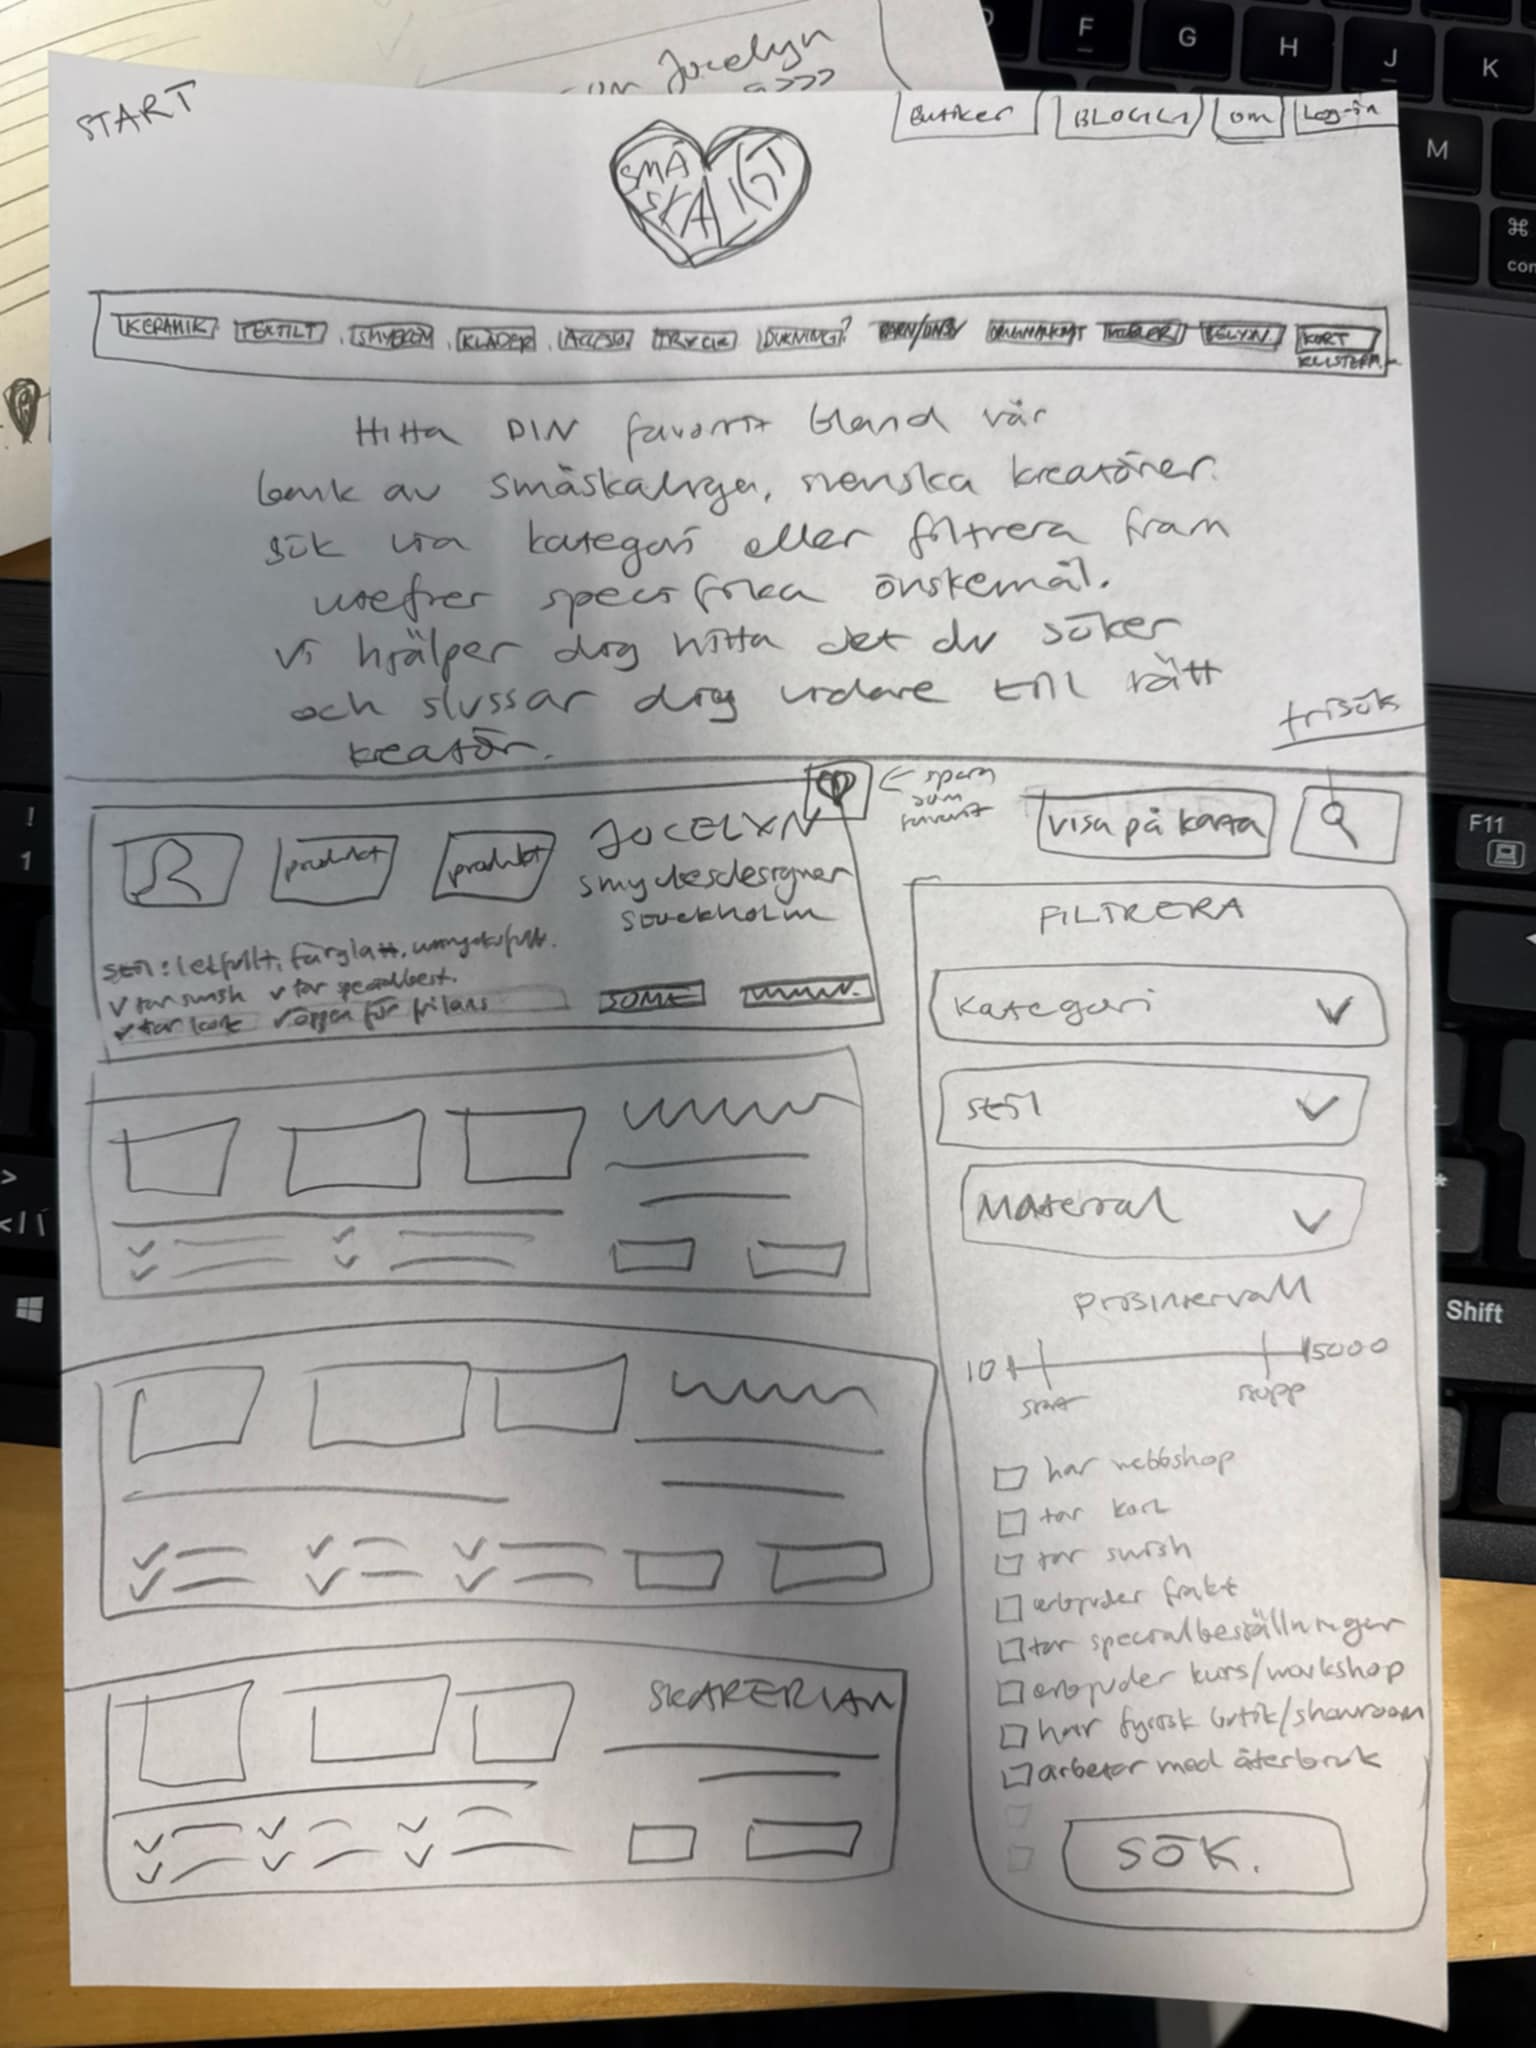 Jocelyn
START
Butiker
BLOGG
om
Log-in
SMÅ
SKALIGT
KERAMIK
TEXTILT
SMYCKEN
KLÄDER
ACCESS
TRYCK
DUKNING?
BARN/
MÖBLER
BELYSN.
KORT
KLISTERM.
Hitta DIN favorit bland vår
bank av småskaliga, svenska kreatörer.
Sök via kategori eller filtrera fram
utefter specifika önskemål.
Vi hjälper dig hitta det du söker
och slussar dig vidare till rätt
kreatör.
frisök
← spara
som
favorit
visa på karta
produkt
produkt
JOCELYN
smyckesdesigner
Stockholm
stil: lekfullt, färglatt, uttrycksfullt.
✓ tar swish ✓ tar specialbest.
✓ tar kort ✓ öppen för frilans
SOME
WWW.
FILTRERA
Kategori
stil
Material
prisintervall
10
15000
start
stopp
har webbshop
tar kort
tar swish
erbjuder frakt
tar specialbeställningar
erbjuder kurs/workshop
har fysisk butik/showroom
arbetar med återbruk
SÖK.
F
G
H
J
K
M
⌘
!
1
F11
>
<
Shift